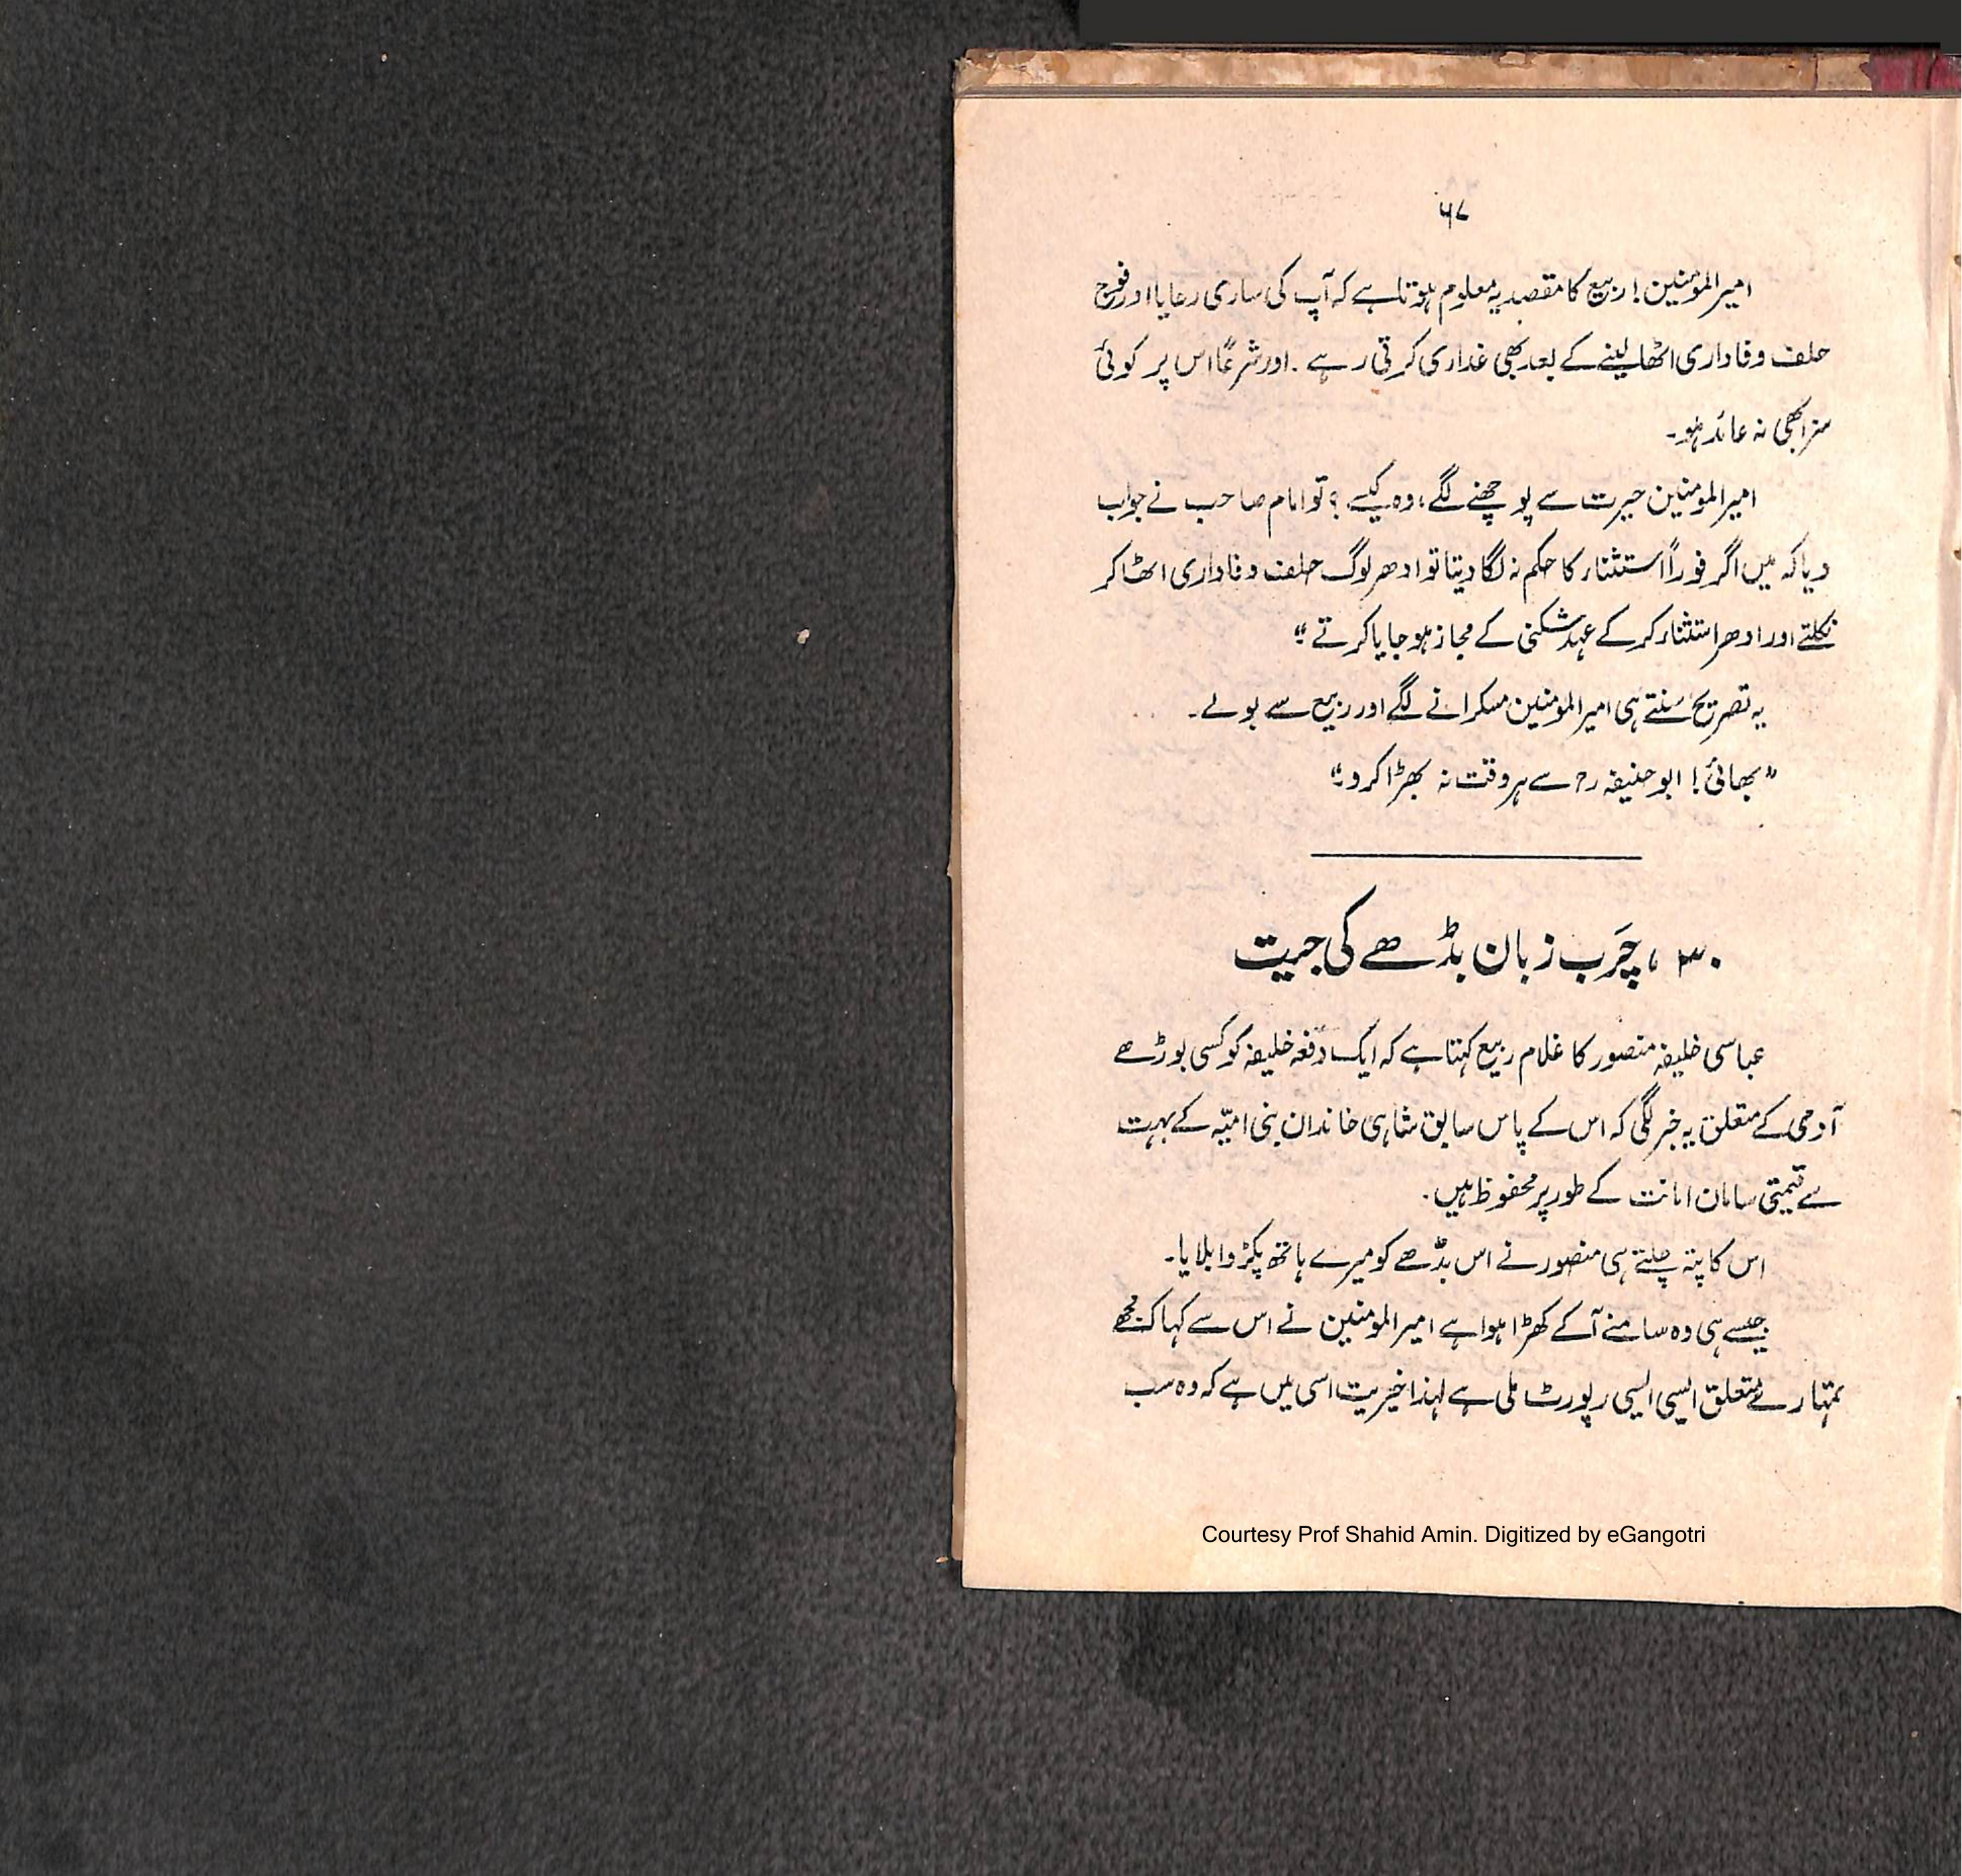 ۶۷
امیرالمؤمنین! ربیع کا مقصد یہ معلوم ہوتا ہے کہ آپ کی ساری رعایا اور فوج
حلف وفاداری اٹھا لینے کے بعد بھی غداری کرتی رہے۔ اور شرعًا اس پر کوئی
سزا بھی نہ عائد ہو۔
امیرالمومنین حیرت سے پوچھنے لگے، وہ کیسے؟ تو امام صاحب نے جواب
دیا کہ میں اگر فوراً استثناء کا حکم نہ لگا دیتا تو ادھر لوگ حلف وفاداری اٹھا کر
نکلتے اور ادھر استثناء کر کے عہد شکنی کے مجاز ہو جایا کرتے“
یہ تصریح سُنتے ہی امیرالمومنین مسکرانے لگے اور ربیع سے بولے۔
”بھائی! ابو حنیفہ رح سے ہر وقت نہ بھڑا کرو“
۳۰، چَرب زبان بڈھے کی جیت
عباسی خلیفہ منصور کا غلام ربیع کہتا ہے کہ ایک دفعہ خلیفہ کو کسی بوڑھے
آدمی کے متعلق یہ خبر لگی کہ اس کے پاس سابق شاہی خاندان بنی امیّہ کے بہت
سے قیمتی سامان امانت کے طور پر محفوظ ہیں۔
اس کا پتہ چلتے ہی منصور نے اس بڈّھے کو میرے ہاتھ پکڑوا بلایا۔
جیسے ہی وہ سامنے آ کے کھڑا ہوا ہے امیرالمومنین نے اس سے کہا کہ مجھے
تمہارے متعلق ایسی ایسی رپورٹ ملی ہے لہذا خیریت اسی میں ہے کہ وہ سب
Courtesy Prof Shahid Amin. Digitized by eGangotri